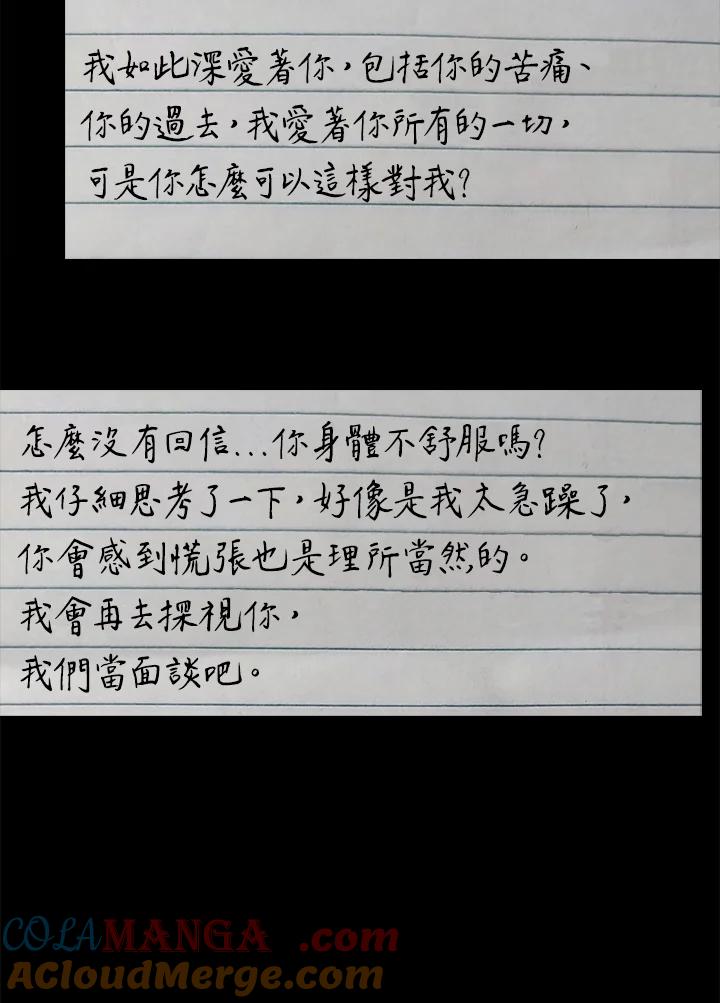 我如此深愛著你，包括你的苦痛、
你的過去，我愛著你所有的一切，
可是你怎麼可以這樣對我？
怎麼沒有回信...你身體不舒服嗎？
我仔細思考了一下，好像是我太急躁了，
你會感到慌張也是理所當然的。
我會再去探視你，
我們當面談吧。
COLAMANGA.com
ACloudMerge.com